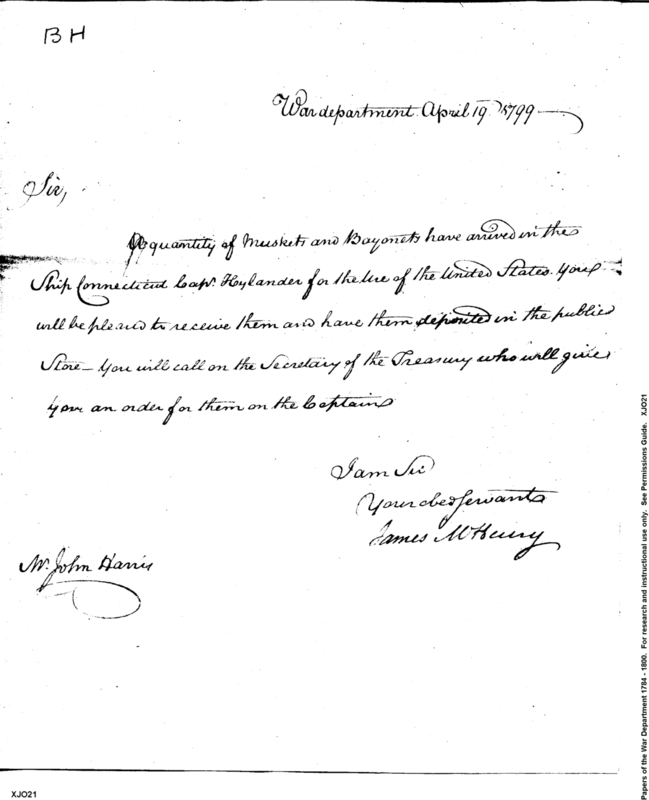 BH
War department April 19 1799
Sir,
A quantity of Muskets and Bayonets have arrived in the
Ship Connecticut Capn. Hylander for the Use of the United States. You
will be pleased to receive them and have them deposited in the public
Store — You will call on the Secretary of the Treasury who will give
you an order for them on the Captain
I am Sir
Your obed Servant
James McHenry
Mr. John Harris
Papers of the War Department 1784 - 1800. For research and instructional use only. See Permissions Guide. XJO21
XJO21